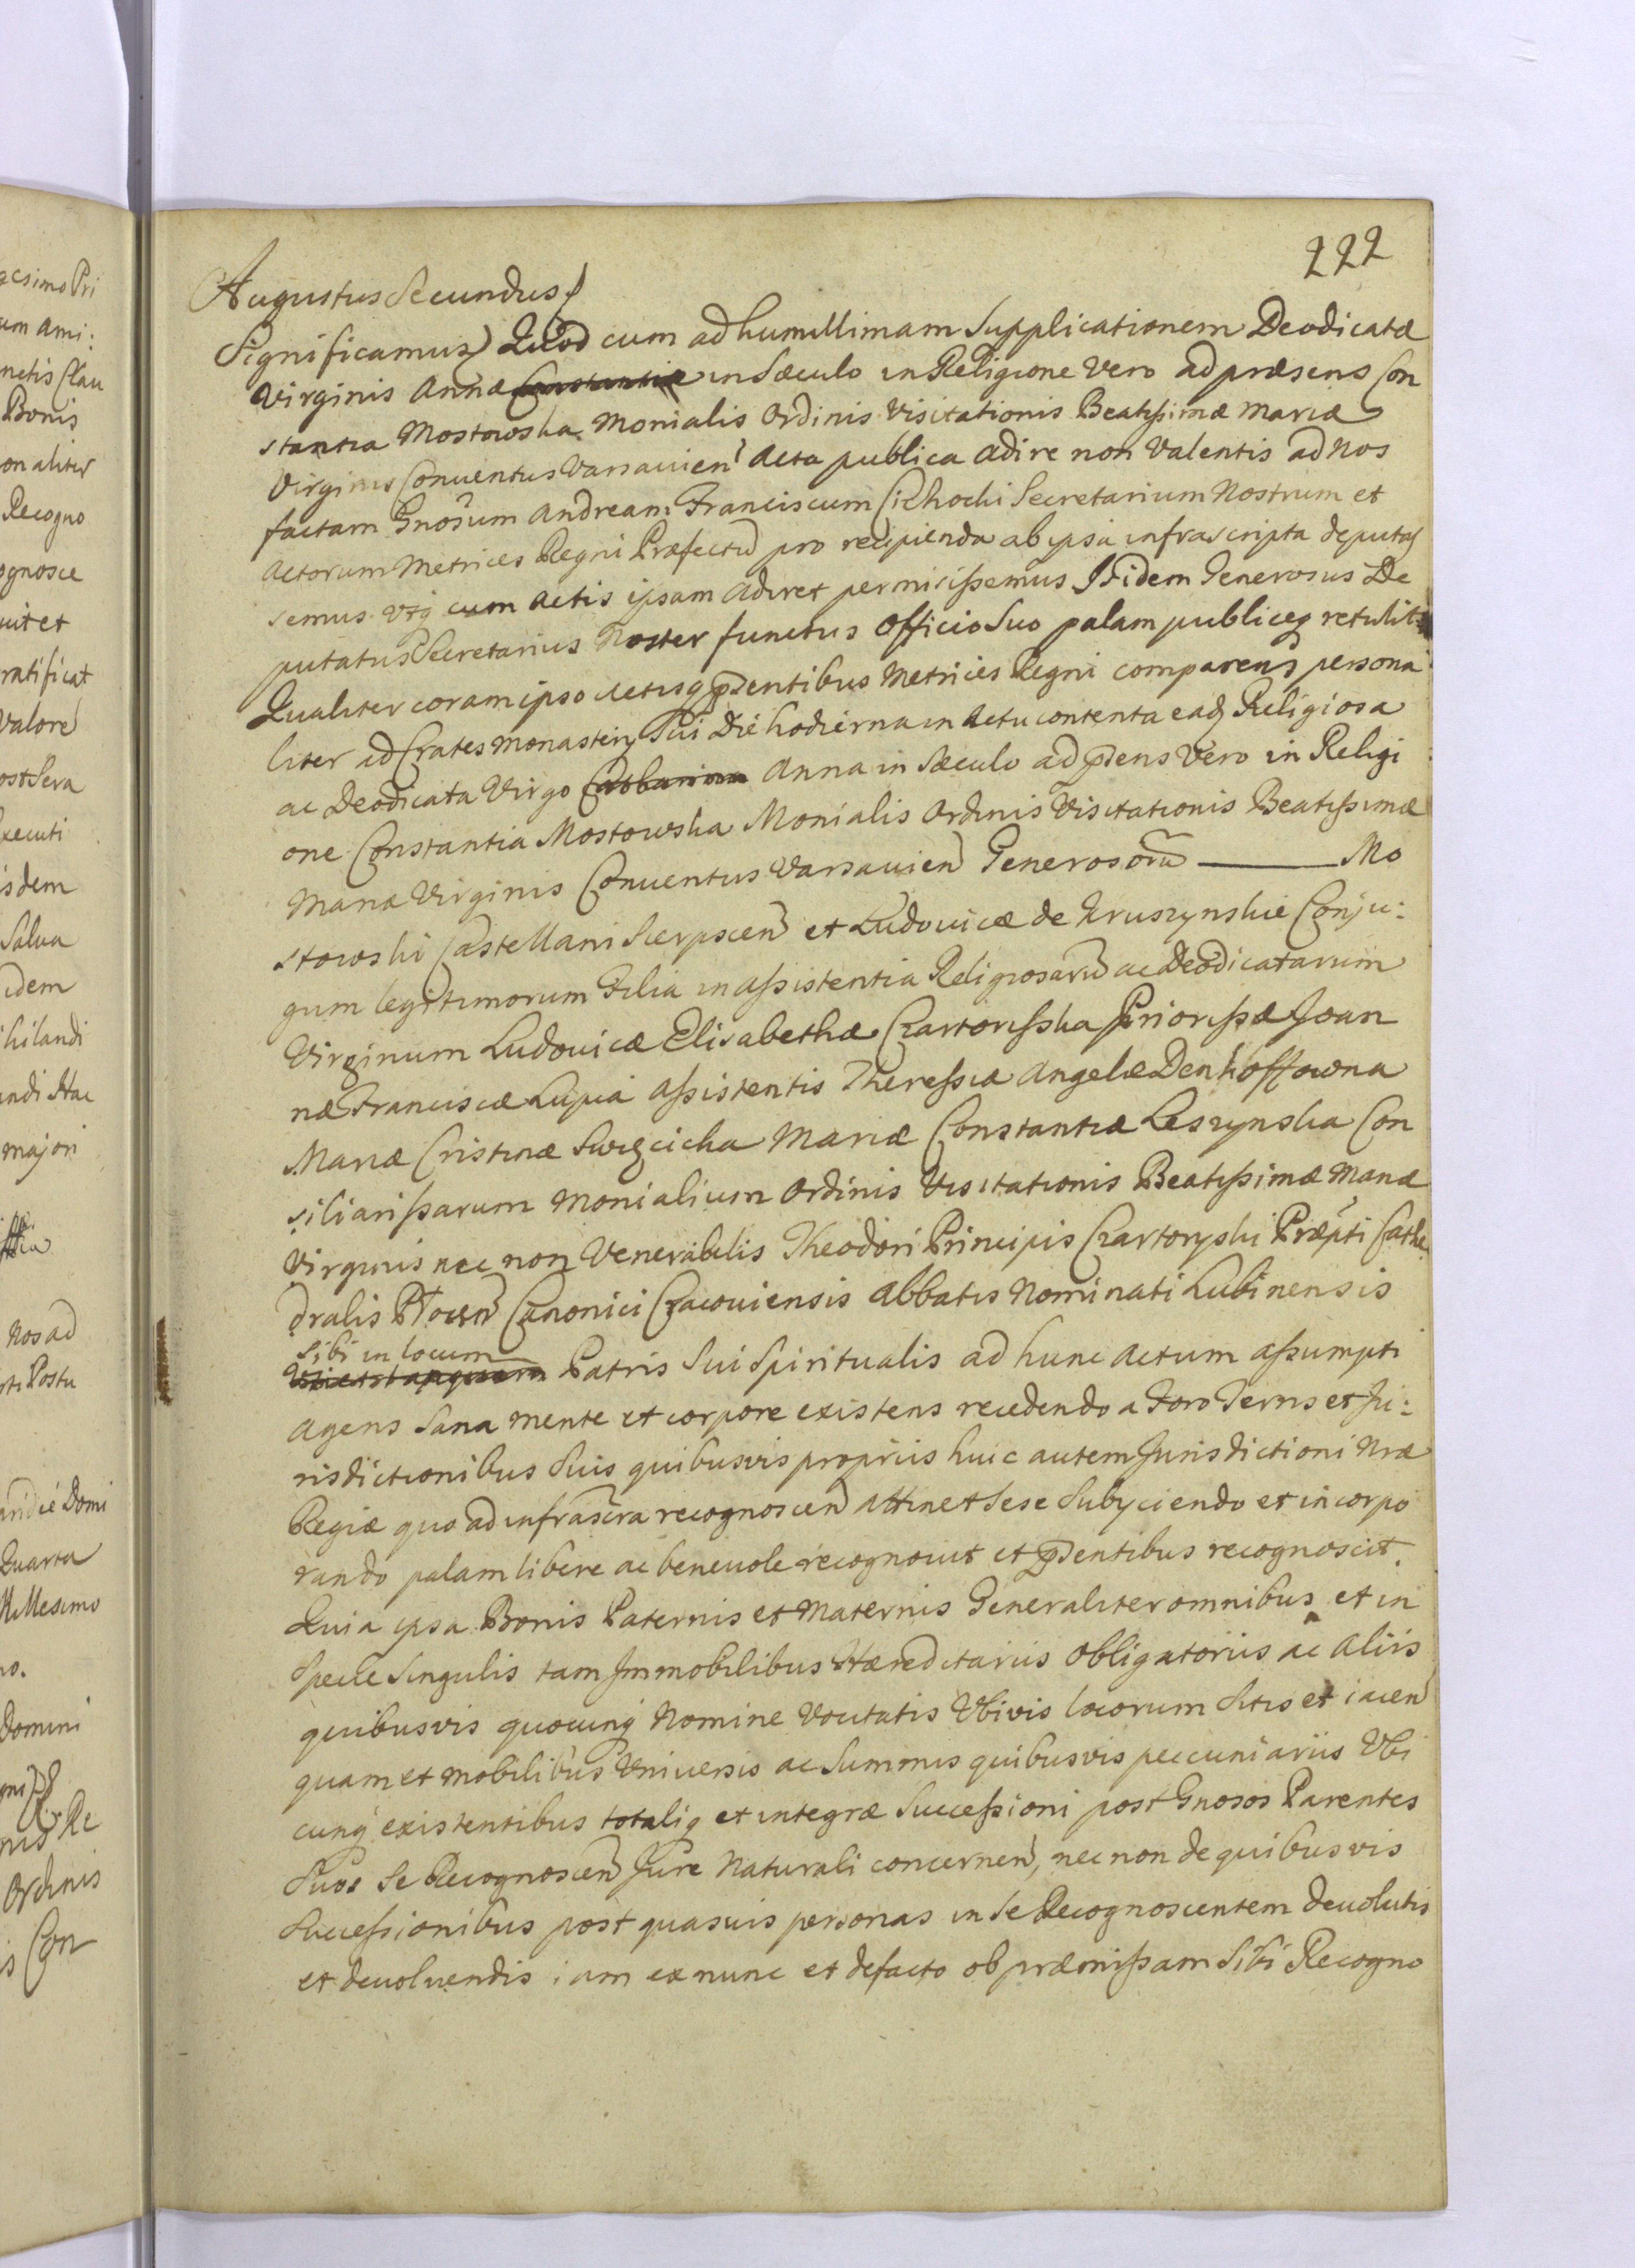 222
Augustus Secundus
Significamus Quod cum ad humillimam Supplicationem Deodicatæ
Virginis Annæ Constantiæ in Sæculo in Religione Vero ad præsens Con
stantia Mostowska Monialis Ordinis Visitationis Beatissimæ Mariæ
Virginis Conuentus Varsauien Acta publica adire non Valentis ad Nos
factam Gnosum Andream Franciscum Cichocki Secretarium Nostrum et
Actorum Metrices Regni Præfectū pro recipienda ab ipsa infrascripta deputas
semus utq cum Actis ipsam adiret permisissemus Itidem Generosus De
putatus Secretarius Noster functus Officio Suo palam publiceq retulit
Qualiter coram ipso Actisq pntibus Metrices Regni comparens persona
liter ad Crates Monasterij Sui Die hodierna in Actu contenta eadē Religiosa
ac Deodicata Virgo Catharina Anna in Sæculo ad psens Vero in Religi
one Constantia Mostowska Monialis Ordinis Visitationis Beatissimæ
Mariæ Virginis Conuentus Varsauien Generosorū Mo
stowski Castellani Sierpscen et Ludouicæ de Kruszynskie Conju:
gum legitimorum Filia in assistentia Religiosarū ac Deodicatarum
Virginum Ludouicæ Elisabethæ Czartorisska Priorissæ Joan
næ Franciscæ Lupia Assistentis Theressiæ Angelæ Denhoffowna
Mariæ Cristinæ Swięcicka Mariæ Constantiæ Leszynska Con
siliarissarum Monialium Ordinis Visitationis Beatissimæ Mariæ
Virginis nec non Venerabilis Theodori Principis Czartoryski Præpti Cathe
dralis Plocen Canonici Cracouiensis Abbatis Nominati Lubinensis
Sibi in locum
Patris Sui Spiritualis ad hunc Actum assumpti
Agens Sana mente et corpore existens recedendo a Foro Terris et Ju:
risdictionibus Suis quibusvis propriis huic autem Jurisdictioni Nræ
Regiæ quo ad infrascra recognoscen attinet Sese Subyciendo et incorpo
rando palam libere ac beneuole recognouit et psentibus recognoscit.
Quia ipsa Bonis Paternis et Maternis Generaliter omnibus et in
Specie Singulis tam Immobilibus Hæreditariis Obligatoriis ac Aliis
quibusvis quocunq Nomine Vocitatis Vbivis locorum Sitis et iacen
quam et mobilibus Vniuersis ac Summis quibusvis peccuniariis Vbi
cunq existentibus totaliq et integræ Successioni post Gnosos Parentes
Suos Se Recognoscen Jure Naturali concernen, nec non de quibusvis
Successionibus post quasuis personas in Se Recognoscentem deuolutis
et deuoluendis iam ex nunc et de facto ob præmissam Sibi Recogno